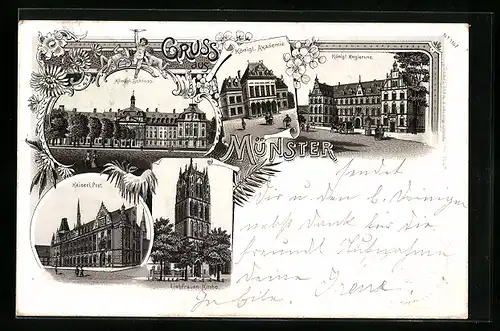 GRUSS
AUS
Königl. Schloss.
Königl. Akademie
Königl. Regierung.
MÜNSTER
Kaiserl. Post.
Liebfrauen-Kirche.
sendet
Dir u. den l.
nebst Dank für die
freundl. Aufnahme
Deine Irene
In Eile.